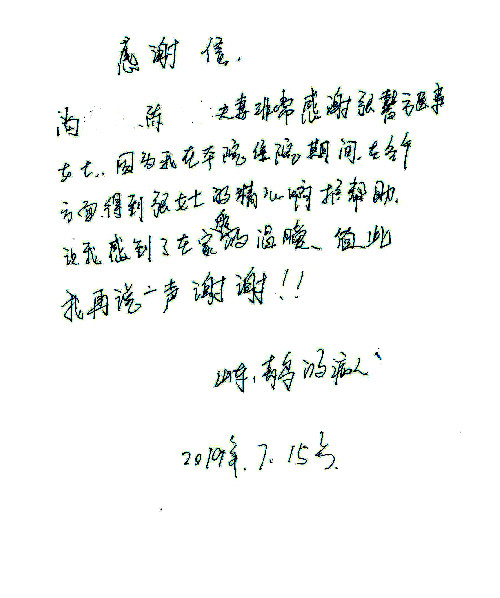 感谢信.
尚 陈 夫妻非常感谢张
女士.因为我在本院住院期间.在各个
方面得到张女士的精心呵护帮助.
让我感到了在家般的温暖、值此
我再说一声谢谢!!
山东,青岛的病人
2019年.7.15号